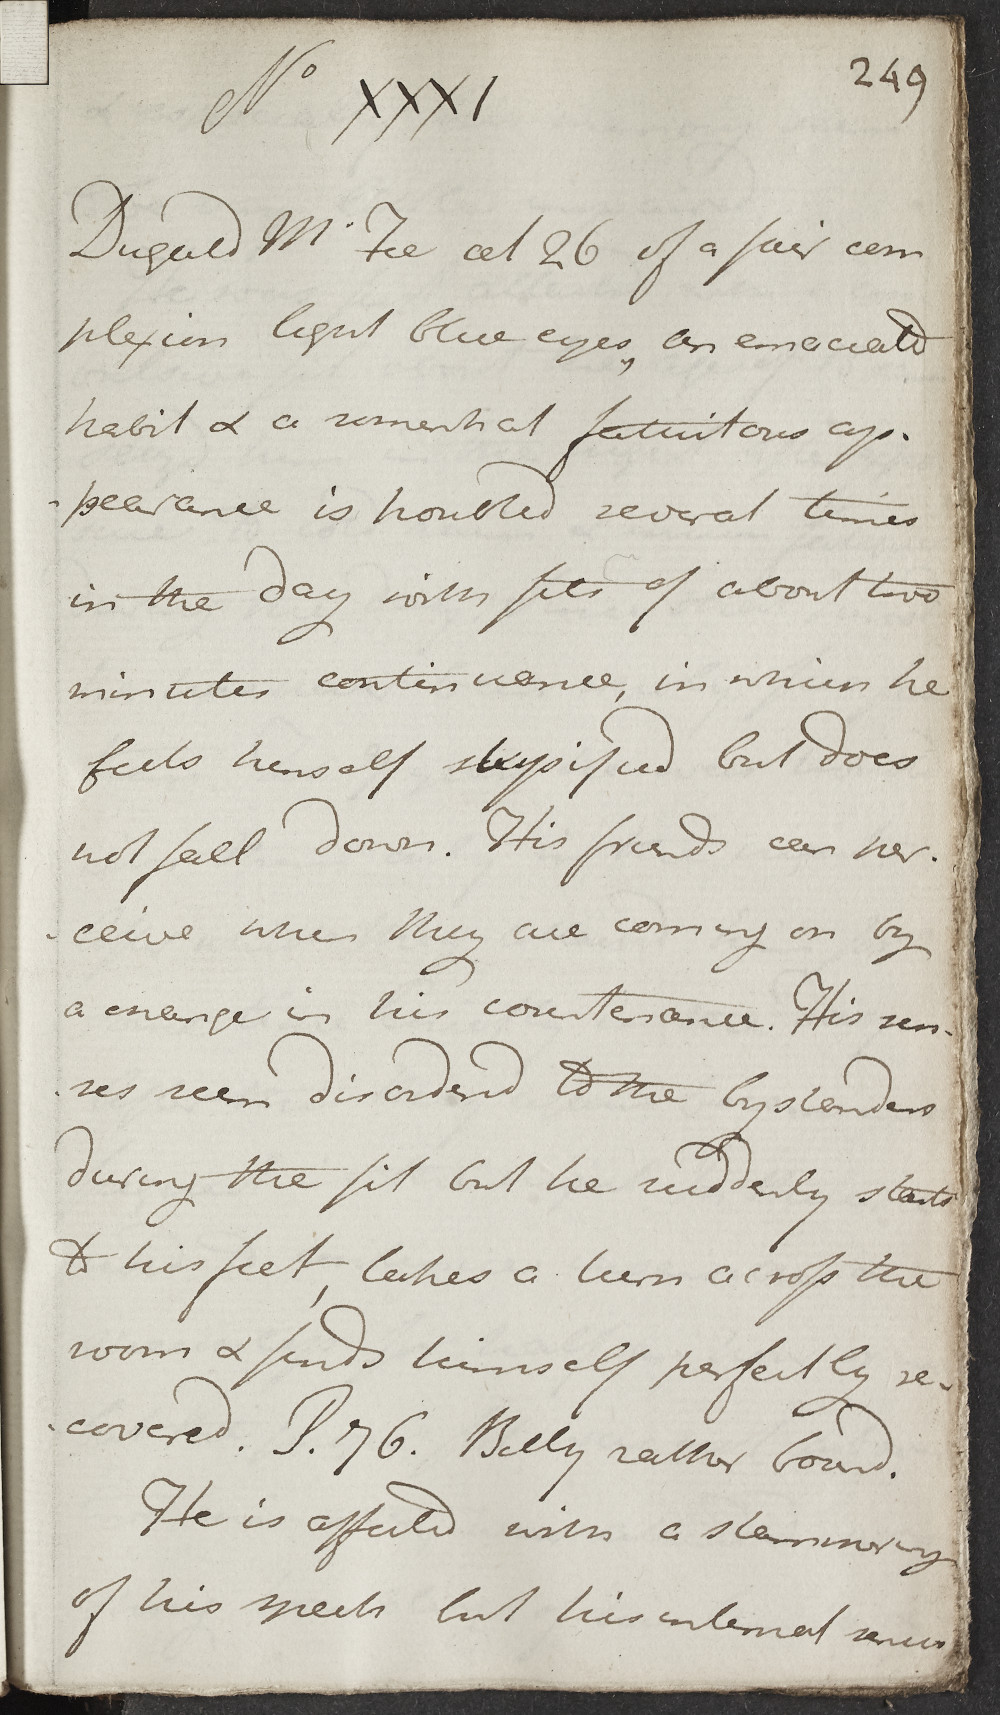 249
No XXXI
Dugald Mc Fee aet 26 of a fair com
plexion light blue eyes, an emaciated
habit & a somewhat fatuitous ap-
-pearance is troubled several times
in the day with fits of about two
minutes continuance, in which he
feels himself stupified but does
not fall down. His friends can per-
-ceive when they are coming on by
a change in his countenance. His sen-
-ses seem disordered to the bystanders
during the fit but he suddenly starts
to his feet, takes a turn across the
room & finds himself perfectly re-
-covered. P. 76. Belly rather bound.
He is affected with a stammering
of his speech but his internal senses